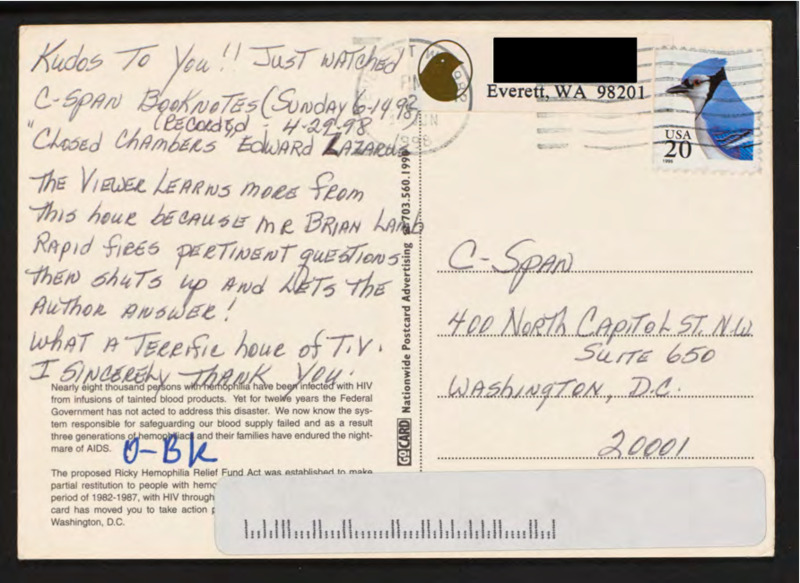 Kudos To You!! Just watched
C-SPAN BookNotes (Sunday 6-14-98)
(Recorded - 4-29-98
"Closed Chambers" Edward Lazarus
The Viewer Learns more from
this hour because Mr Brian Lamb
Rapid fires pertinent questions
then shuts up and lets the
Author answer!
What a Terrific hour of T.V.
I sincerely thank you.
Nearly eight thousand persons with hemophilia have been infected with HIV
from infusions of tainted blood products. Yet for twelve years the Federal
Government has not acted to address this disaster. We now know the sys-
tem responsible for safeguarding our blood supply failed and as a result
three generations of hemophiliacs and their families have endured the night-
mare of AIDS.
O-BK
The proposed Ricky Hemophilia Relief Fund Act was established to make
partial restitution to people with hemo
period of 1982-1987, with HIV through
card has moved you to take action
Washington, D.C.
GoCARD Nationwide Postcard Advertising 703.560.199
PM
JUN
1998
Everett, WA 98201
USA
20
1995
C-Span
400 North Capitol St. N.W.
Suite 650
Washington, D.C.
20001